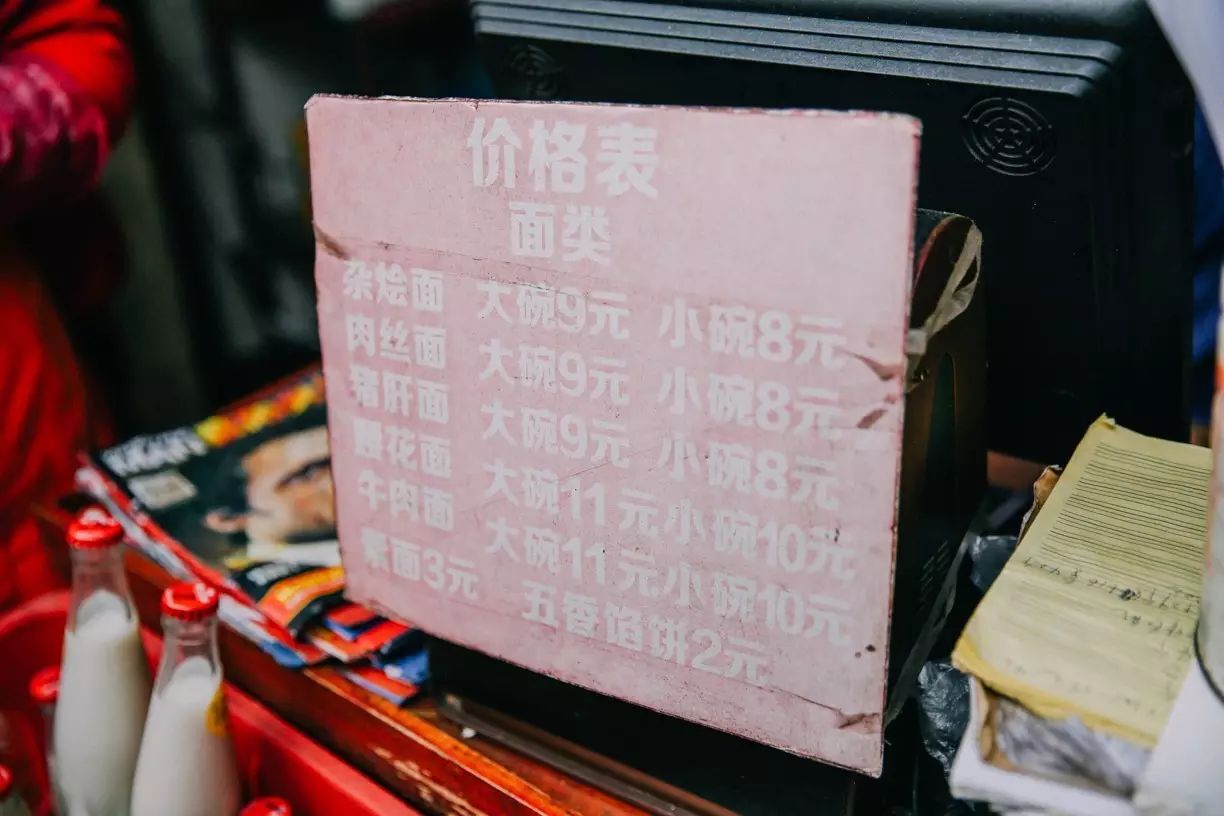 价格表
面类
杂烩面 大碗9元 小碗8元
肉丝面 大碗9元 小碗8元
猪肝面 大碗9元 小碗8元
腰花面 大碗11元 小碗10元
牛肉面 大碗11元 小碗10元
素面3元 五香馅饼2元